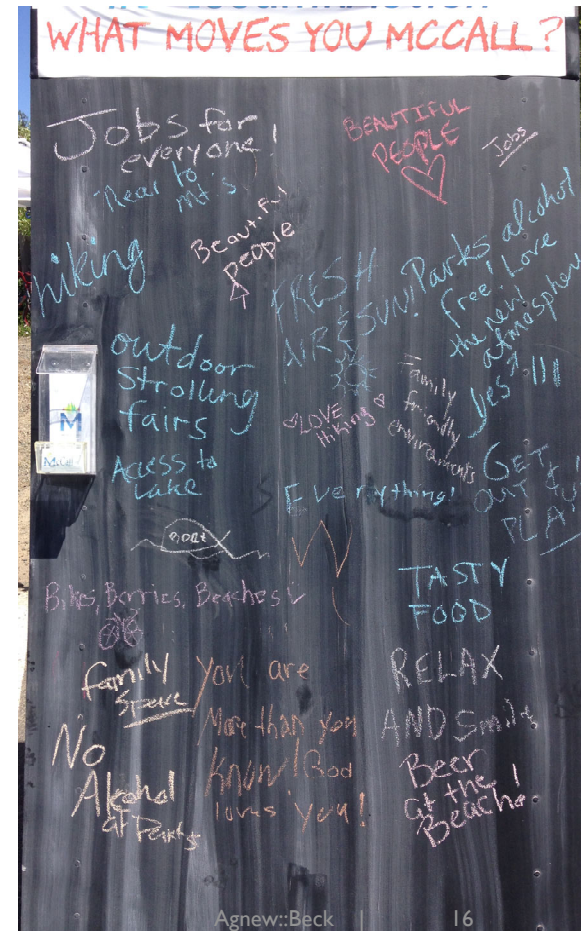 WHAT MOVES YOU MCCALL?
Jobs for
everyone!
near to
Mt's
BEAUTIFUL
PEOPLE
Jobs
hiking
Beautiful
People
FRESH
AIR & SUN!
Parks alcohol
free! Love
the new
atmosphere
Yes !!!
outdoor
Strolling
fairs
LOVE
Hiking
Family
friendly
environments
Access to
Lake
Everything!
GET
OUT &
PLAY
M
Bikes, Berries, Beaches
TASTY
FOOD
family
Space
You are
More than you
Know! God
loves you!
RELAX
AND Smile
No
Alcohol
at Parks
Beer
at the
Beach!
Agnew::Beck | 16